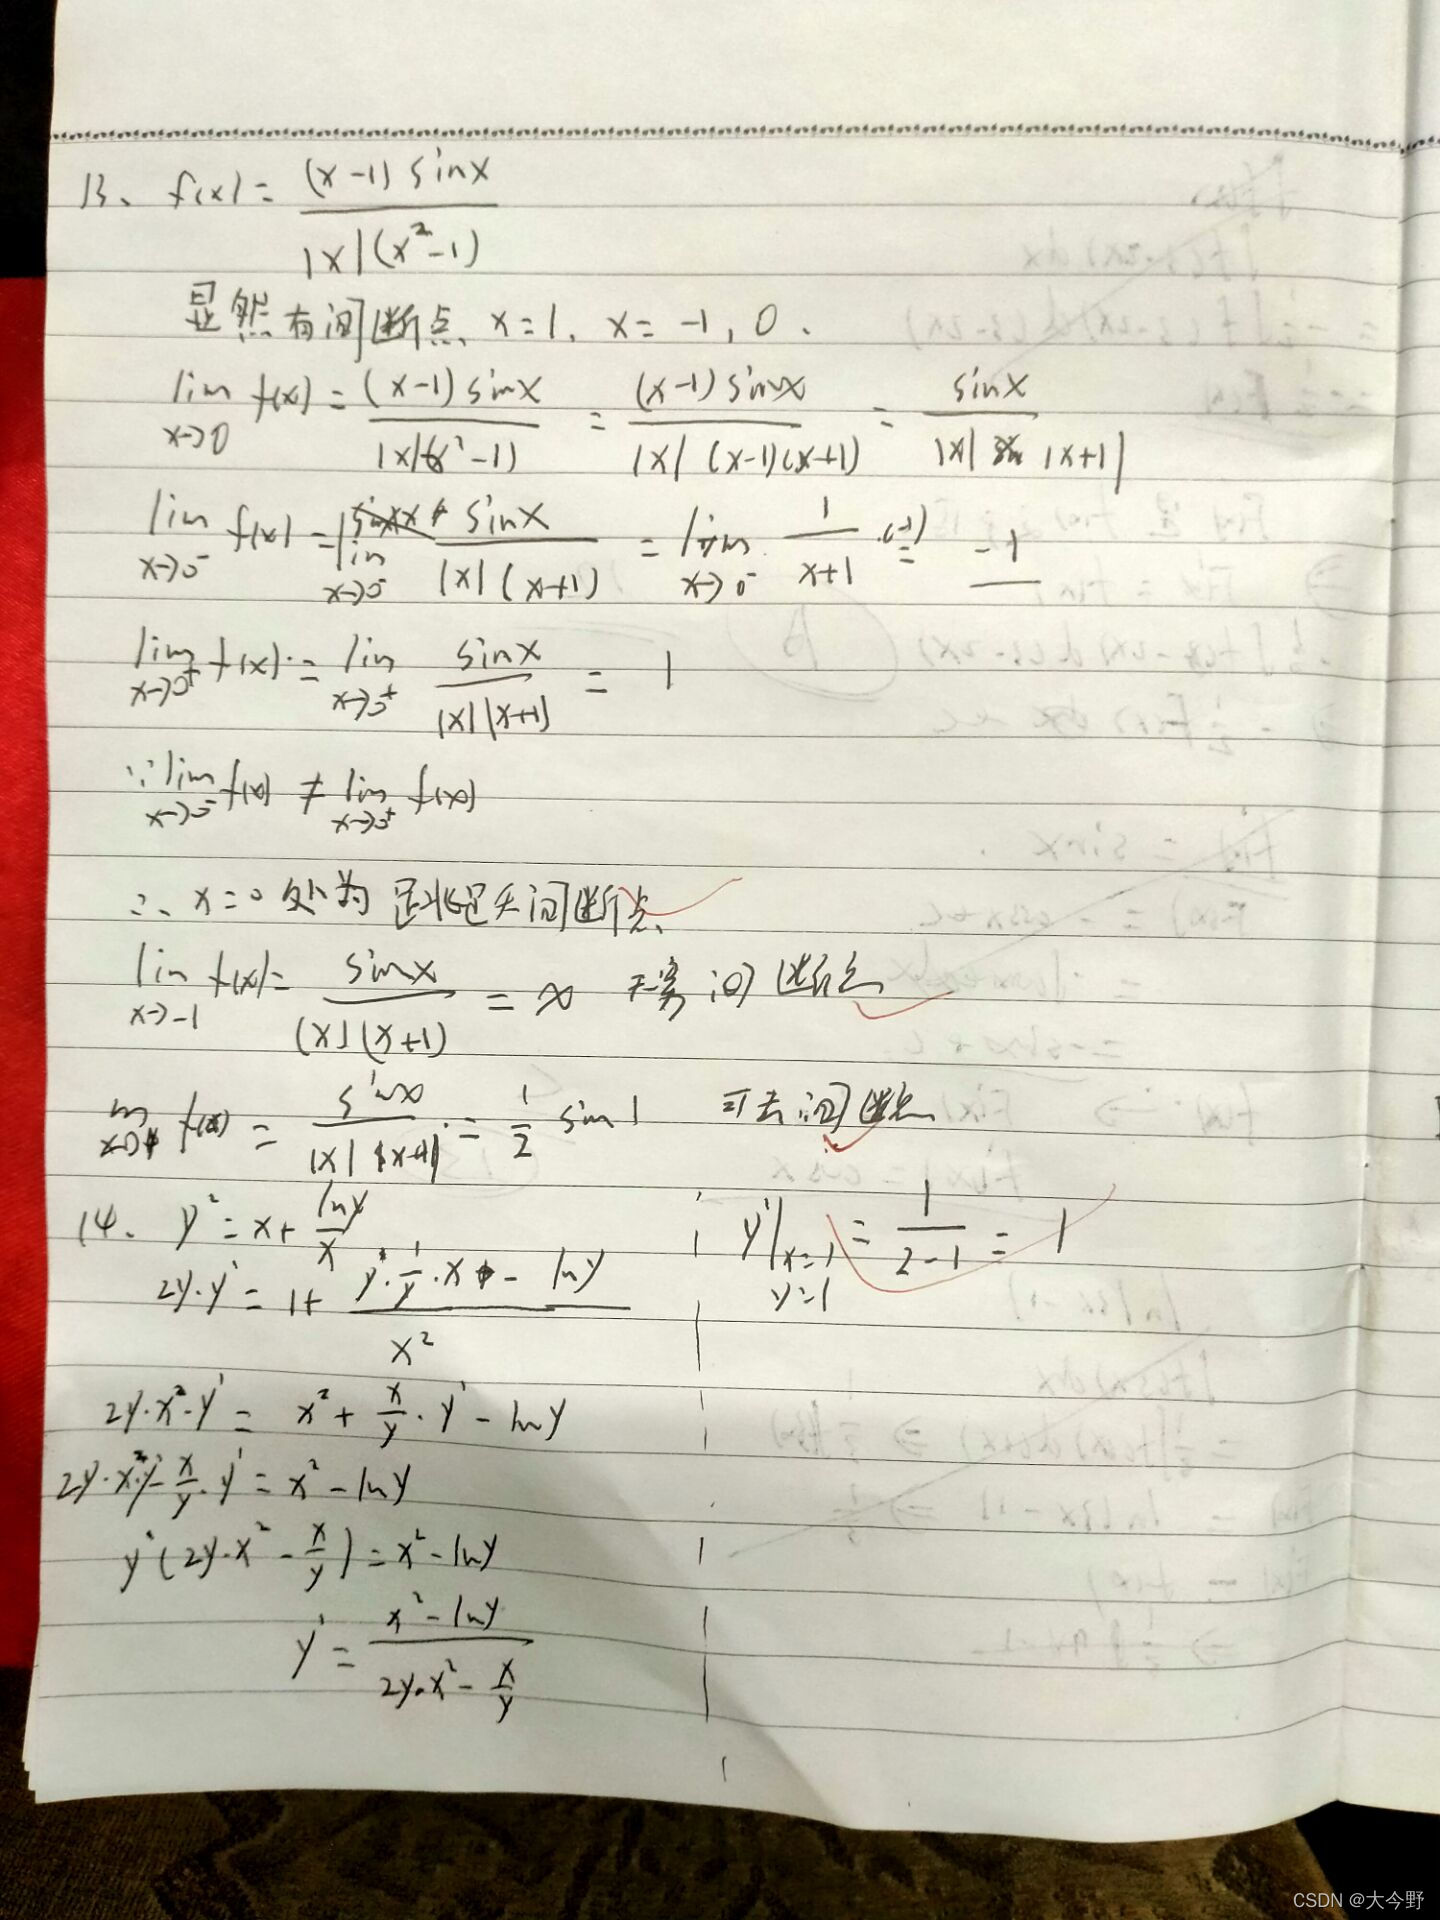 13、 f(x) = \frac{(x-1) sinx}{|x|(x²-1)}
显然有间断点 x=1, x= -1, 0.
lim_{x→0} f(x) = \frac{(x-1) sinx}{|x|(x²-1)} = \frac{(x-1) sinx}{|x| (x-1)(x+1)} = \frac{sinx}{|x| |x+1|}
lim_{x→0⁻} f(x) = lim_{x→0⁻} \frac{sinx}{|x| (x+1)} = lim_{x→0⁻} \frac{1}{x+1} ·(-1) = -1
lim_{x→0⁺} f(x) = lim_{x→0⁺} \frac{sinx}{|x| |x+1|} = 1
∵ lim_{x→0⁻} f(x) ≠ lim_{x→0⁺} f(x)
∴ x=0 处为 跳跃间断点
lim_{x→-1} f(x) = \frac{sinx}{|x| (x+1)} = ∞ 无穷间断点
lim_{x→1} f(x) = \frac{sinx}{|x| |x+1|} = \frac{1}{2} sin1 可去间断点
14、 y² = x + \frac{lny}{x}
2y·y' = 1 + \frac{y'·\frac{1}{y}·x - lny}{x²}
2y·x²·y' = x² + \frac{x}{y}·y' - lny
2y·x²·y' - \frac{x}{y}·y' = x² - lny
y'(2y·x² - \frac{x}{y}) = x² - lny
y' = \frac{x² - lny}{2y·x² - \frac{x}{y}}
y'|_{x=1 y=1} = \frac{1}{2-1} = 1
CSDN @大今野